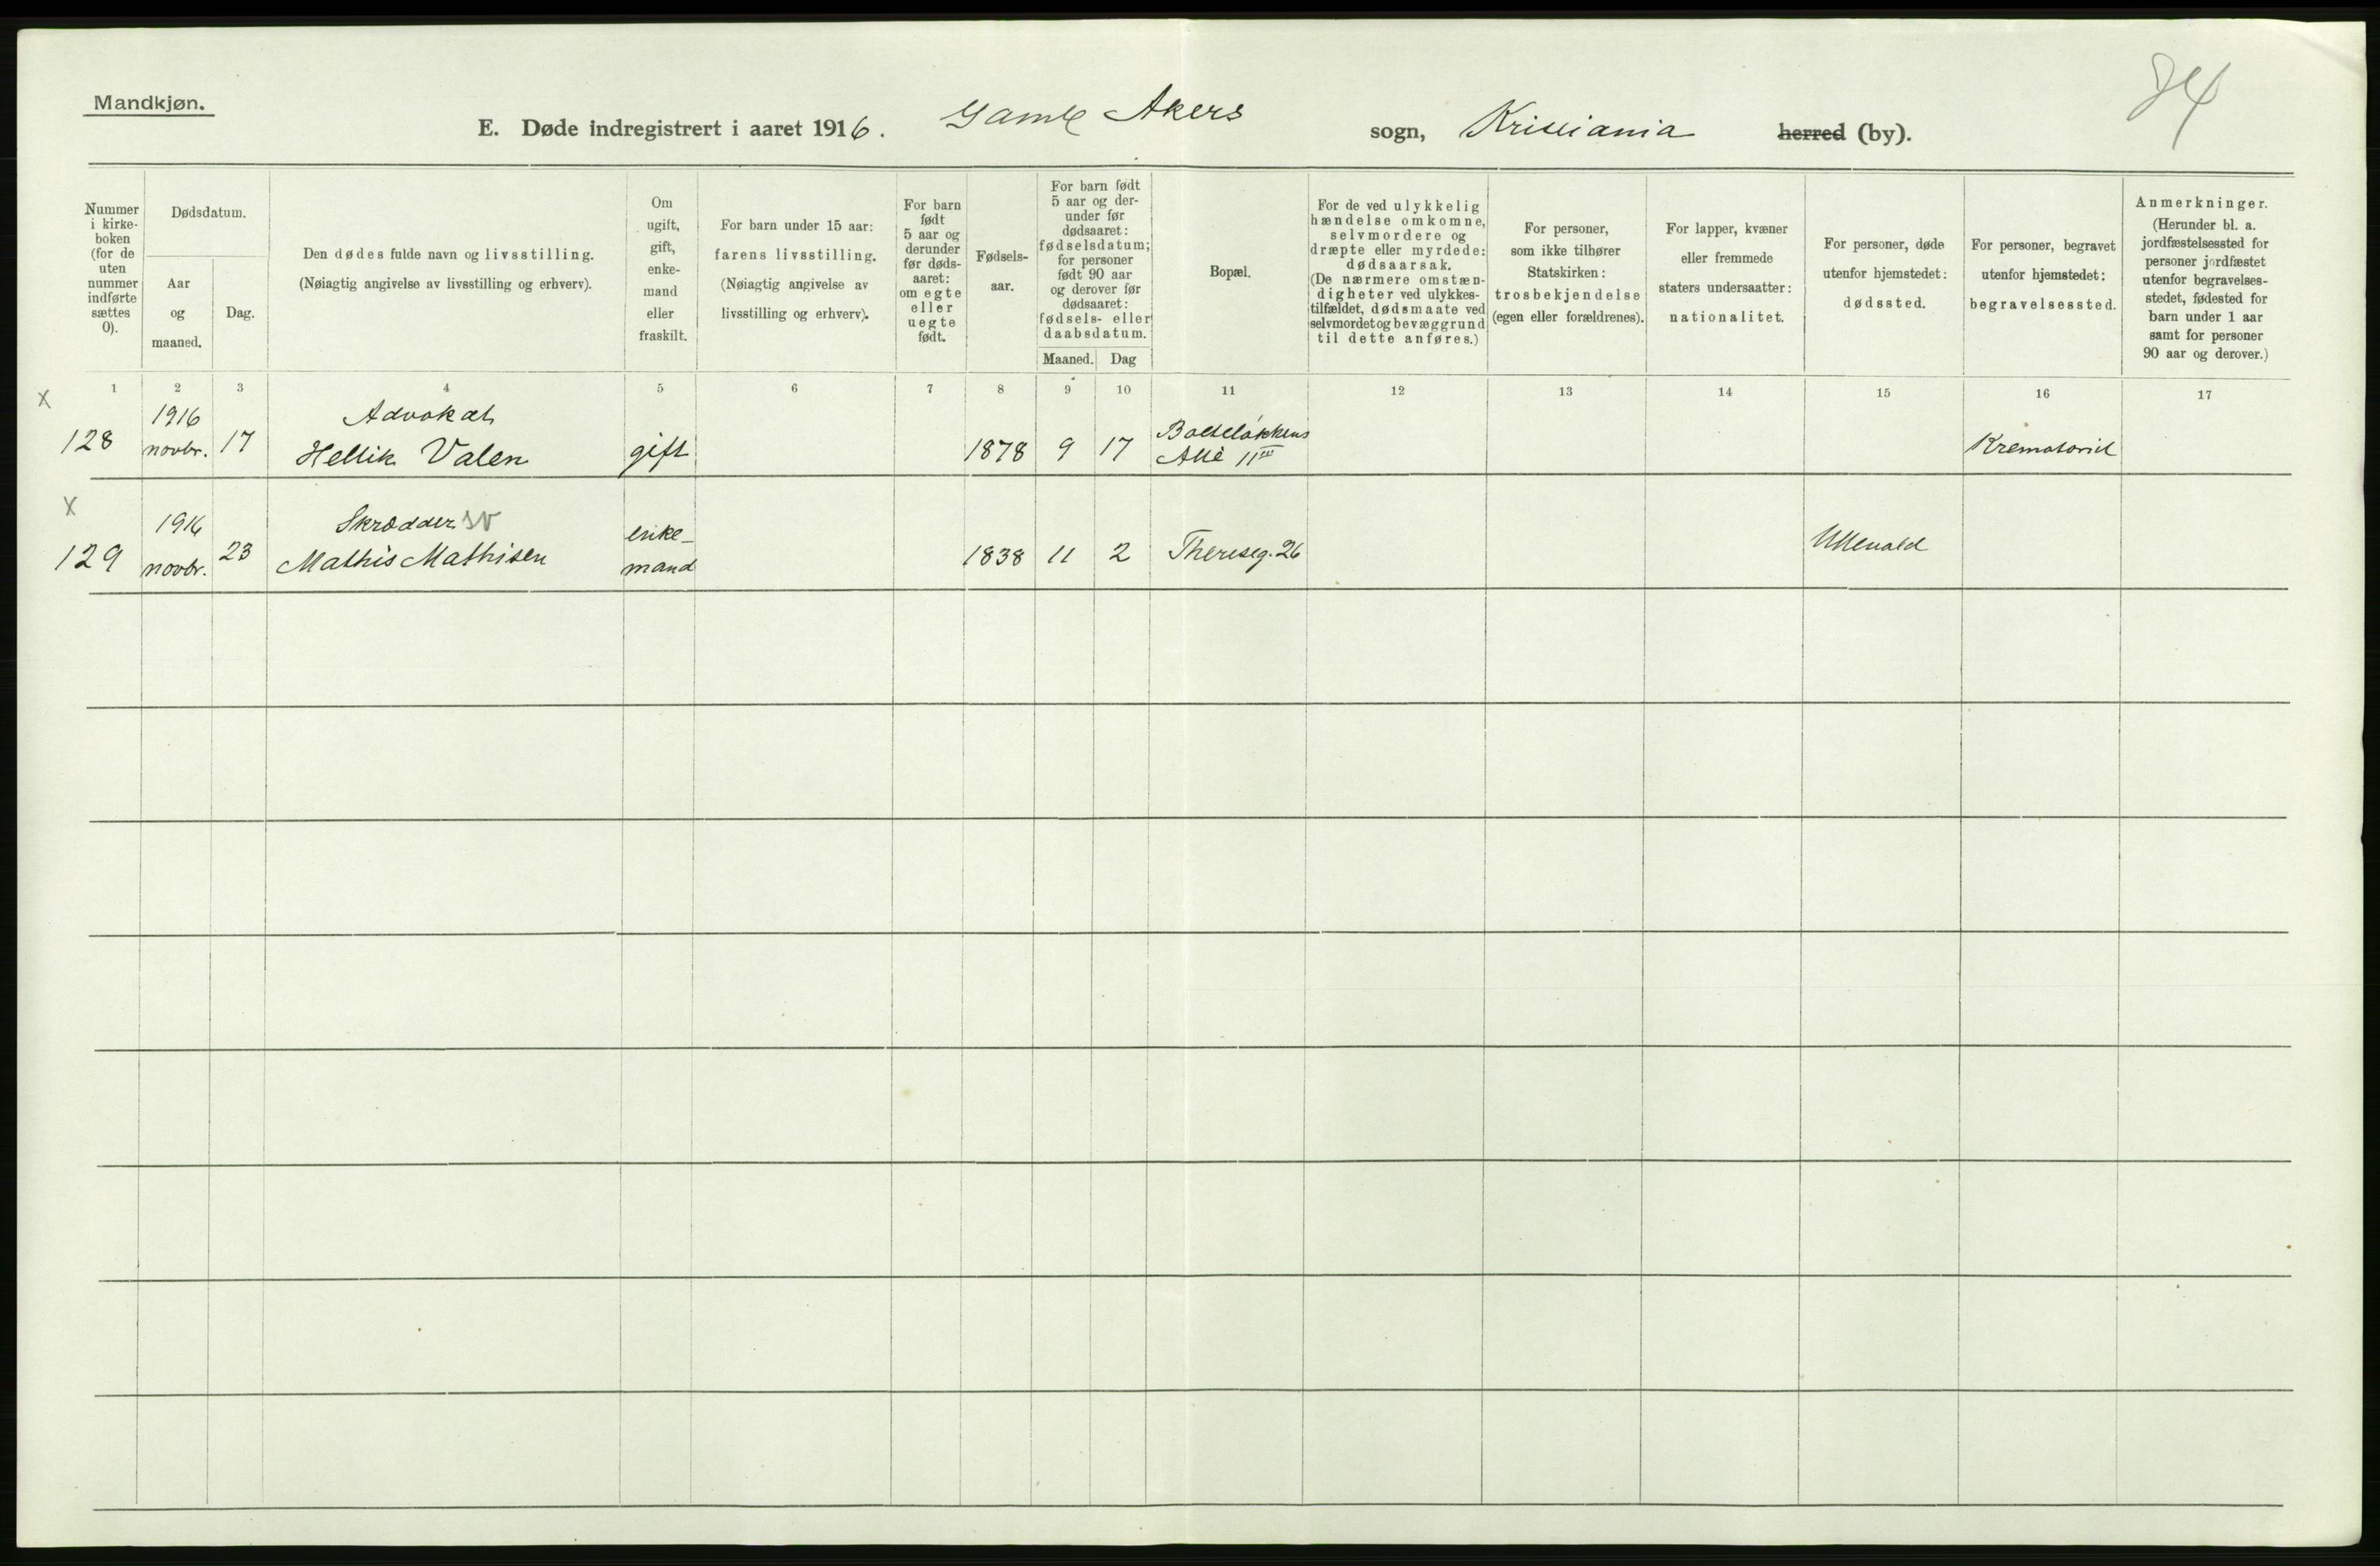 Mandkjøn.
84
E. Døde indregistrert i aaret 1916. Gamle Akers sogn, Kristiania herred (by).
Nummer
i kirke-
boken
(for de
uten
nummer
indførte
sættes
0).
Dødsdatum.
Aar
og
maaned.
Dag.
Den dødes fulde navn og livsstilling.
(Nøiagtig angivelse av livsstilling og erhverv).
Om
ugift,
gift,
enke-
mand
eller
fraskilt.
For barn under 15 aar:
farens livsstilling.
(Nøiagtig angivelse av
livsstilling og erhverv).
For barn
født
5 aar og
derunder
før døds-
aaret:
om egte
eller
uegte
født.
Fødsels-
aar.
For barn født
5 aar og der-
under før
dødsaaret:
fødselsdatum;
for personer
født 90 aar
og derover før
dødsaaret:
fødsels- eller
daabsdatum.
Maaned. Dag
Bopæl.
For de ved ulykkelig
hændelse omkomne,
selvmordere og
dræpte eller myrdede:
dødsaarsak.
(De nærmere omstæn-
digheter ved ulykkes-
tilfældet, dødsmaate ved
selvmordet og bevæggrund
til dette anføres.)
For personer,
som ikke tilhører
Statskirken:
trosbekjendelse
(egen eller forældrenes).
For lapper, kvæner
eller fremmede
staters undersaatter:
nationalitet.
For personer, døde
utenfor hjemstedet:
dødssted.
For personer, begravet
utenfor hjemstedet:
begravelsessted.
Anmerkninger.
(Herunder bl. a.
jordfæstelsessted for
personer jordfæstet
utenfor begravelses-
stedet, fødested for
barn under 1 aar
samt for personer
90 aar og derover.)
1 2 3 4 5 6 7 8 9 10 11 12 13 14 15 16 17
x
128 1916 novbr. 17 Advokat
Hellik Valen gift 1878 9 17 Bolteløkkens
Allè 11 III Krematoriet
x
129 1916 novbr. 23 Skrædder SV
Mathis Mathisen enke-
mand 1838 11 2 Thereseg. 26 Ullevald